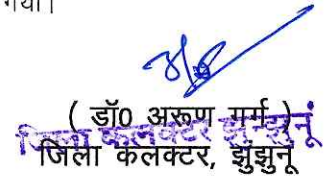 गया।
( डॉ0 अरूण गर्ग )
जिला कलक्टर झुन्झुनूं
जिला कलक्टर, झुंझुनूं